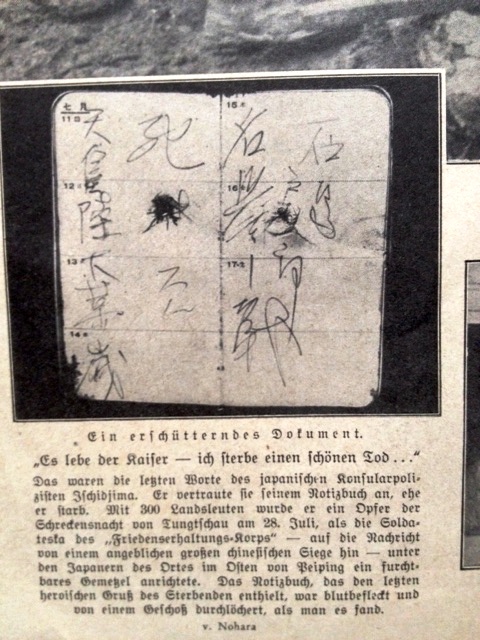 七月
11日
12
13
14
15
16
17
石
名譽ノ戰
死
天皇陛下萬歳
Ein erschütterndes Dokument.
„Es lebe der Kaiser — ich sterbe einen schönen Tod ...“
Das waren die letzten Worte des japanischen Konsularpoli-
zisten Ischidjima. Er vertraute sie seinem Notizbuch an, ehe
er starb. Mit 300 Landsleuten wurde er ein Opfer der
Schreckensnacht von Tungtschau am 28. Juli, als die Solda-
teska des „Friedenserhaltungs-Korps“ — auf die Nachricht
von einem angeblichen großen chinesischen Siege hin — unter
den Japanern des Ortes im Osten von Peiping ein furcht-
bares Gemetzel anrichtete. Das Notizbuch, das den letzten
heroischen Gruß des Sterbenden enthielt, war blutbefleckt und
von einem Geschoß durchlöchert, als man es fand.
v. Nohara